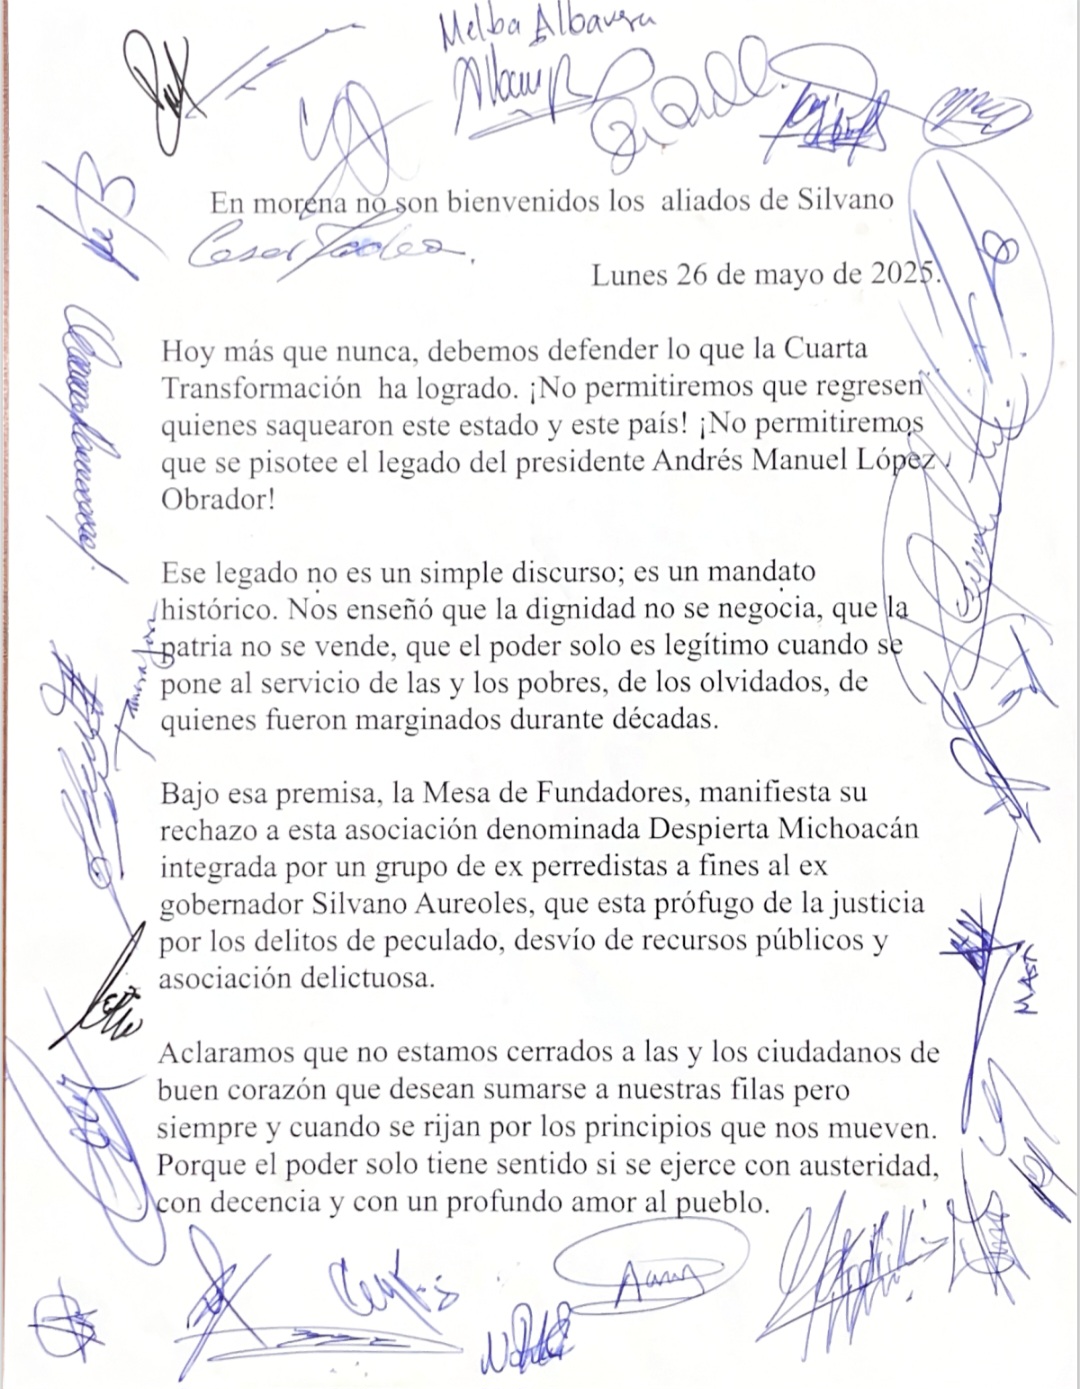 Melba Albavera
En morena no son bienvenidos los aliados de Silvano
Cesar Tadeo
Lunes 26 de mayo de 2025.
Hoy más que nunca, debemos defender lo que la Cuarta
Transformación ha logrado. ¡No permitiremos que regresen
quienes saquearon este estado y este país! ¡No permitiremos
que se pisotee el legado del presidente Andrés Manuel López
Obrador!
Ese legado no es un simple discurso; es un mandato
histórico. Nos enseñó que la dignidad no se negocia, que la
patria no se vende, que el poder solo es legítimo cuando se
pone al servicio de las y los pobres, de los olvidados, de
quienes fueron marginados durante décadas.
Bajo esa premisa, la Mesa de Fundadores, manifiesta su
rechazo a esta asociación denominada Despierta Michoacán
integrada por un grupo de ex perredistas a fines al ex
gobernador Silvano Aureoles, que esta prófugo de la justicia
por los delitos de peculado, desvío de recursos públicos y
asociación delictuosa.
Aclaramos que no estamos cerrados a las y los ciudadanos de
buen corazón que desean sumarse a nuestras filas pero
siempre y cuando se rijan por los principios que nos mueven.
Porque el poder solo tiene sentido si se ejerce con austeridad,
con decencia y con un profundo amor al pueblo.